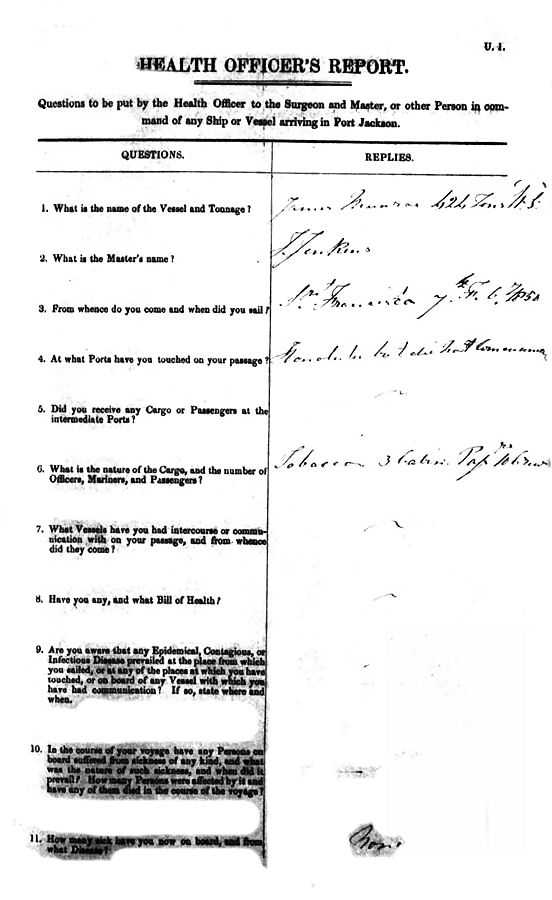 U. 1.
HEALTH OFFICER'S REPORT.
Questions to be put by the Health Officer to the Surgeon and Master, or other Person in com-
mand of any Ship or Vessel arriving in Port Jackson.
QUESTIONS.
REPLIES.
1. What is the name of the Vessel and Tonnage?
424 Tons
2. What is the Master's name?
Jenkins
3. From whence do you come and when did you sail?
Francisco 1850
4. At what Ports have you touched on your passage?
Honolulu but did not
5. Did you receive any Cargo or Passengers at the
intermediate Ports?
6. What is the nature of the Cargo, and the number of
Officers, Mariners, and Passengers?
Tobacco 3 Cabin
7. What Vessels have you had intercourse or commu-
nication with on your passage, and from whence
did they come?
8. Have you any, and what Bill of Health?
9. Are you aware that any Epidemical, Contagious, or
Infectious Disease prevailed at the place from which
you sailed, or at any of the places at which you have
touched, or on board of any Vessel with which you
have had communication? If so, state where and
when.
10. In the course of your voyage have any Persons on
board suffered from sickness of any kind, and what
was the nature of such sickness, and when did it
prevail? How many Persons were affected by it and
have any of them died in the course of the voyage?
11. How many sick have you now on board, and from
what Disease?
None